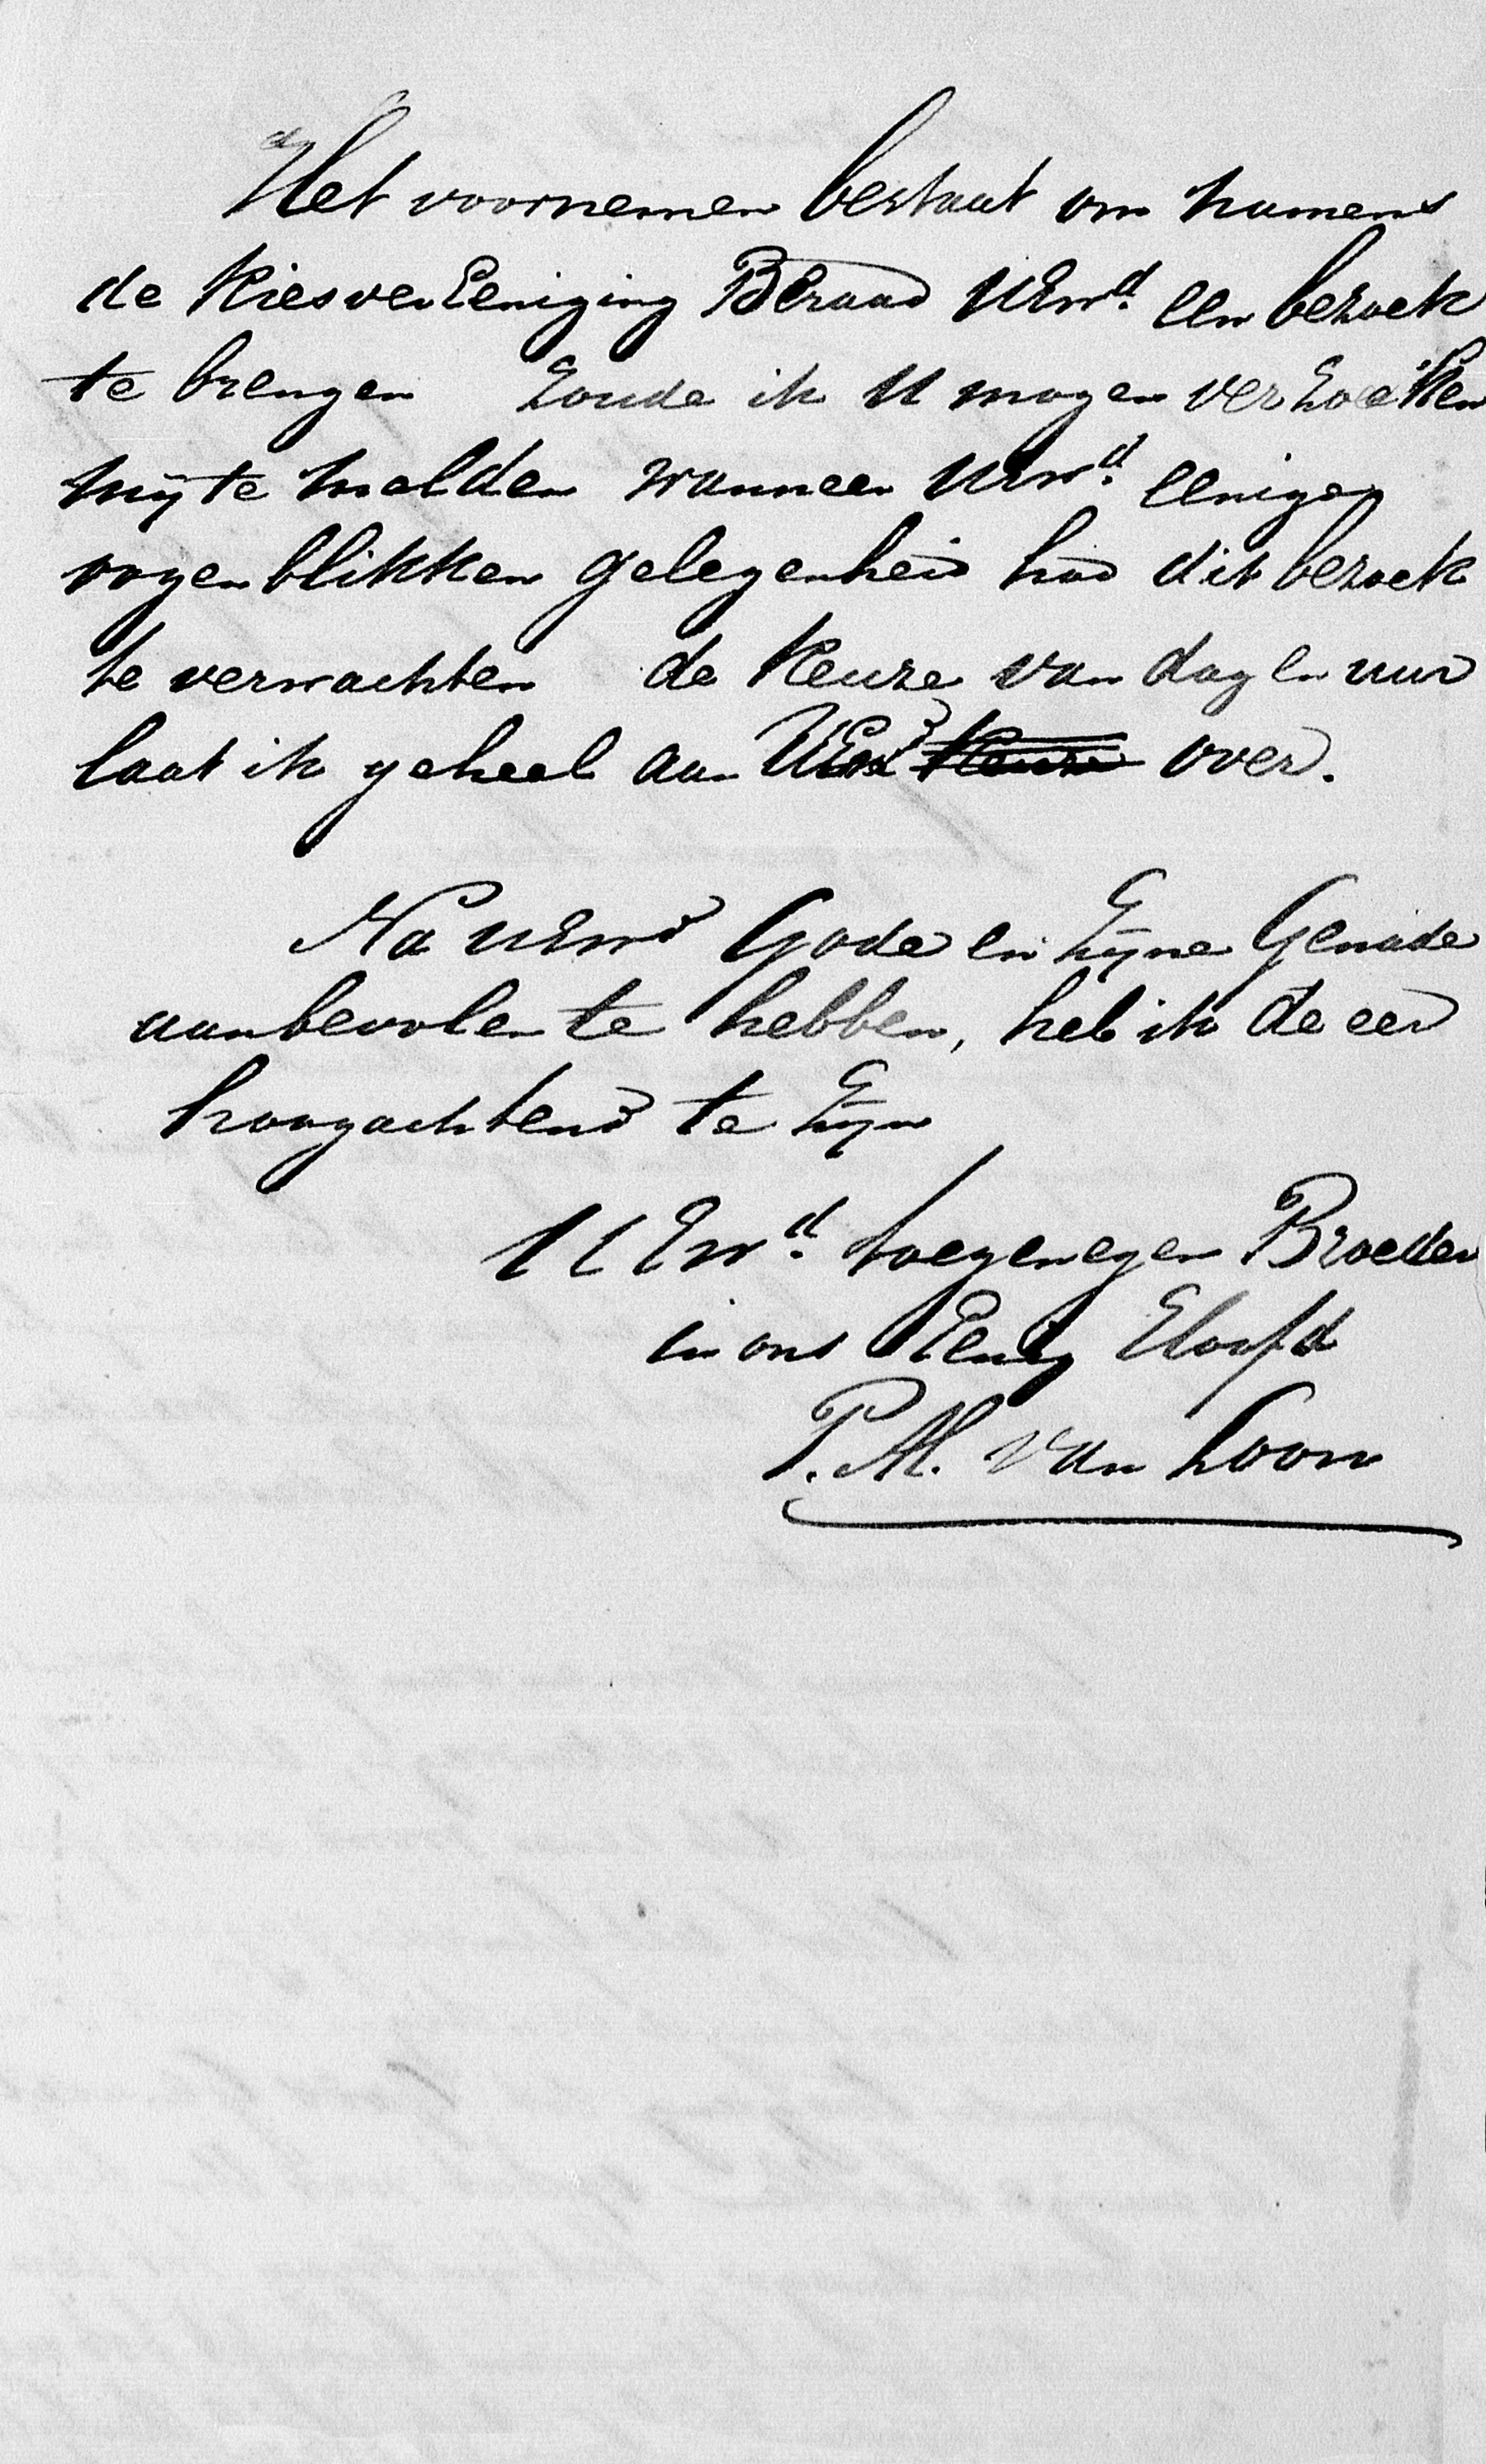 Het voornemen bestaat om namens
de KiesverEeniging Beraad UEwd. een bezoek
te brengen Zoude ik U mogen verzoeken
mij te melden wanneer UEwd. eenige
oogenblikken gelegenheid had dit bezoek
te verwachten de Keuze van dag en uur
laat ik geheel aan UEwd Keuze over.
Na UEwd Gode en Zijne Genade
aanbevolen te hebben, heb ik de eer
hoogachtend te Zijn
UEwd. toegenegen Broeder
in ons Eenig Hoofd
P. M. van Loon